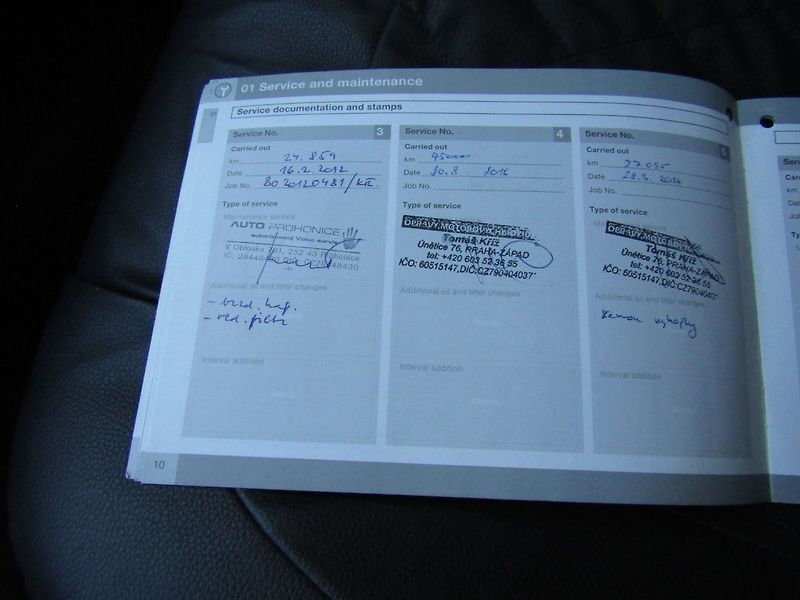 01 Service and maintenance
Service documentation and stamps
Service No. 3
Carried out
km 24.859
Date 16.2.2012
Job No. BO20120481/KR.
Type of service
Maintenance service
AUTO PRŮHONICE
autorizovaný Volvo servis
V Oblouku 731, 252 43 Průhonice
Additional oil and filter changes
- brzd. kap.
Interval addition
Stamp
Service No. 4
Carried out
km 45000
Date 20.8. 2016
Job No.
Type of service
OPRAVY MOTOROVÝCH
Tomáš Kříž
Únětice 76, PRAHA-ZÁPAD
tel: +420 603 52 38 55
IČO: 60515147, DIČ:CZ790404037
Additional oil and filter changes
Stamp
Interval addition
Stamp
Service No. 5
Carried out
km
Date
Job No.
Type of service
OPRAVY MOTOROVÝCH
Tomáš Kříž
Únětice 76, PRAHA-ZÁPAD
tel: +420 603 52 38 55
IČO: 60515147, DIČ:CZ790404037
Additional oil and filter changes
Interval addition
Stamp
10